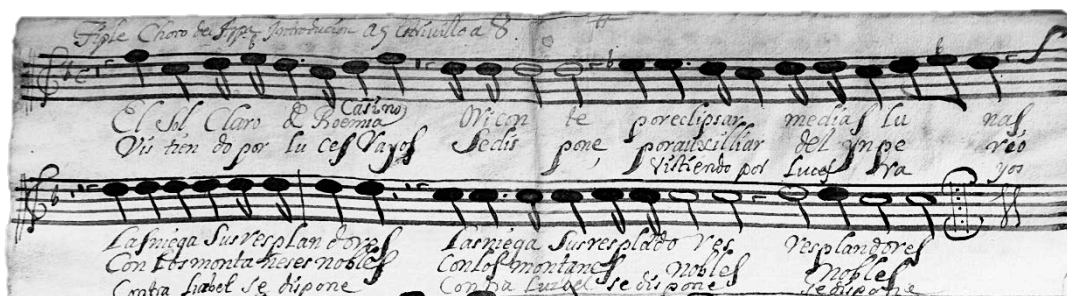 Tiple Choro de Introducion a 5 estrivillo a 8
Casino
El Sol Claro de Boemia Oricon te por eclipsar medias lu nas
Vis tien do por lu ces Rayos Se dis pone, por auxilliar del ynpe reo
Vistiendo por Luces ra yos
Las niega Sus resplan dores Las niega Sus resplādo res resplandores
Con Los montañeses nobles Con los montañes nobles nobles
Contra Luzbel se dispone Contra Luzbel se dispone se dispone